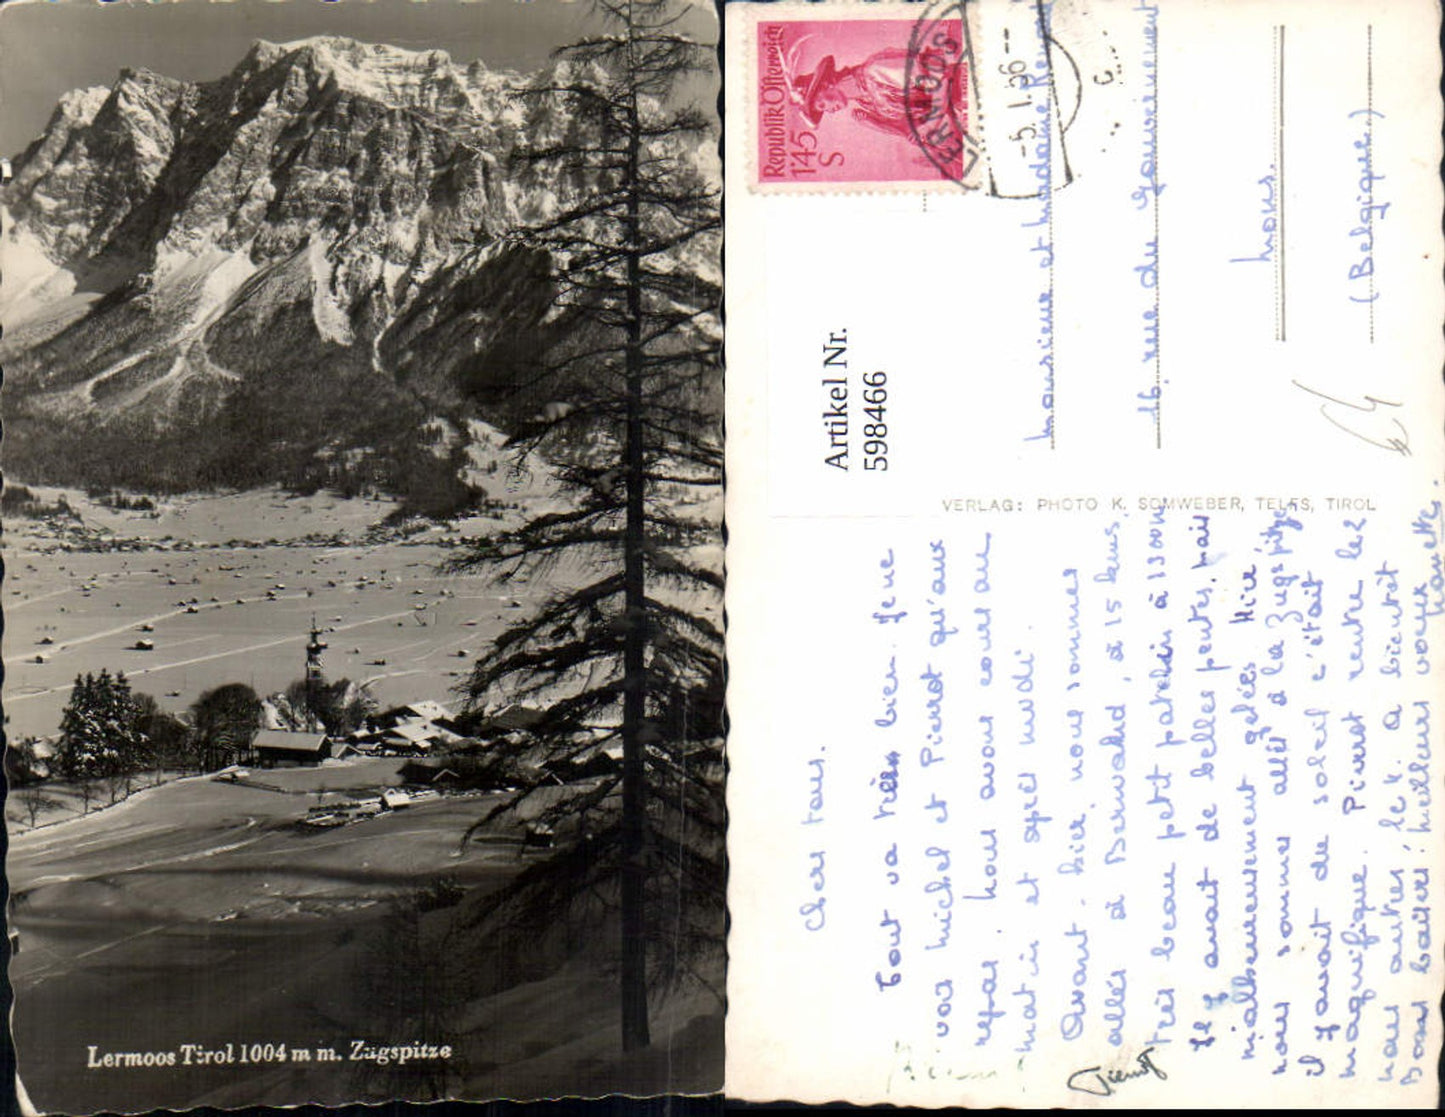 Lermoos Tirol 1004 m m. Zugspitze
Republik Österreich
1'45
S
LERMOOS
-5.1.56--
Artikel Nr.
598466
VERLAG: PHOTO K. SOMWEBER, TELFS, TIROL
Monsieur et Madame
16, rue du Gouvernement
Mons.
(Belgique.)
Chers tous.
Tout va très bien. Je ne
vois Michel et Pierrot qu'aux
repas. Nous avons cours au
matin et après midi.
Avant-hier nous sommes
allés à Berwald, à 15 kms,
très beau petit patelin à 1300m
Il y avait de belles pentes, mais
malheureusement gelées. Hier
nous sommes allés à la Zugspitze
il y avait du soleil c'était
magnifique. Pierrot rentre les
nous autres, le 4. A bientôt
Bons baisers, meilleurs voeux
Pierrot